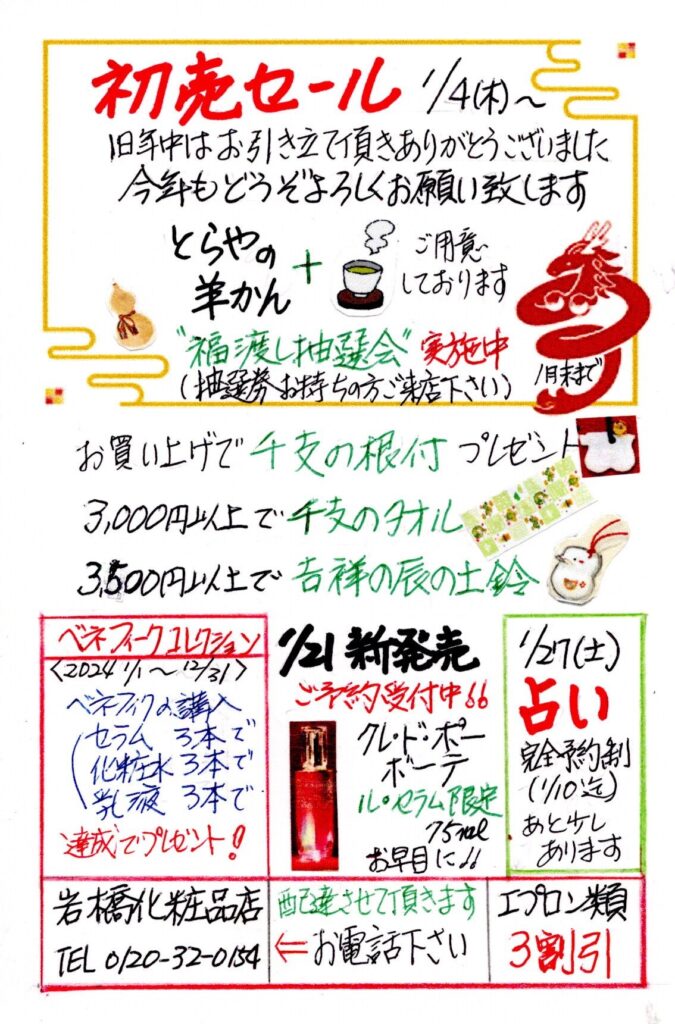 初売セール 1/4(木)〜
旧年中はお引き立て頂きありがとうございました
今年もどうぞよろしくお願い致します
とらやの
羊かん
+
ご用意
しております
"福渡し抽選会" 実施中
(抽選券お持ちの方ご来店下さい)
1月末まで
お買い上げで干支の根付プレゼント
3,000円以上で干支のタオル
3,500円以上で吉祥の辰の土鈴
ベネフィークコレクション
<2024 1/1〜12/31>
ベネフィークの購入
セラム 3本で
化粧水 3本で
乳液 3本で
達成でプレゼント!
1/21 新発売
ご予約受付中!!
クレ・ド・ポー
ボーテ
ル・セラム限定
75ml
お早目に!!
1/27(土)
占い
完全予約制
(1/10迄)
あと少し
あります
岩橋化粧品店
TEL 0120-32-0154
配達させて頂きます
⇐お電話下さい
エプロン類
3割引